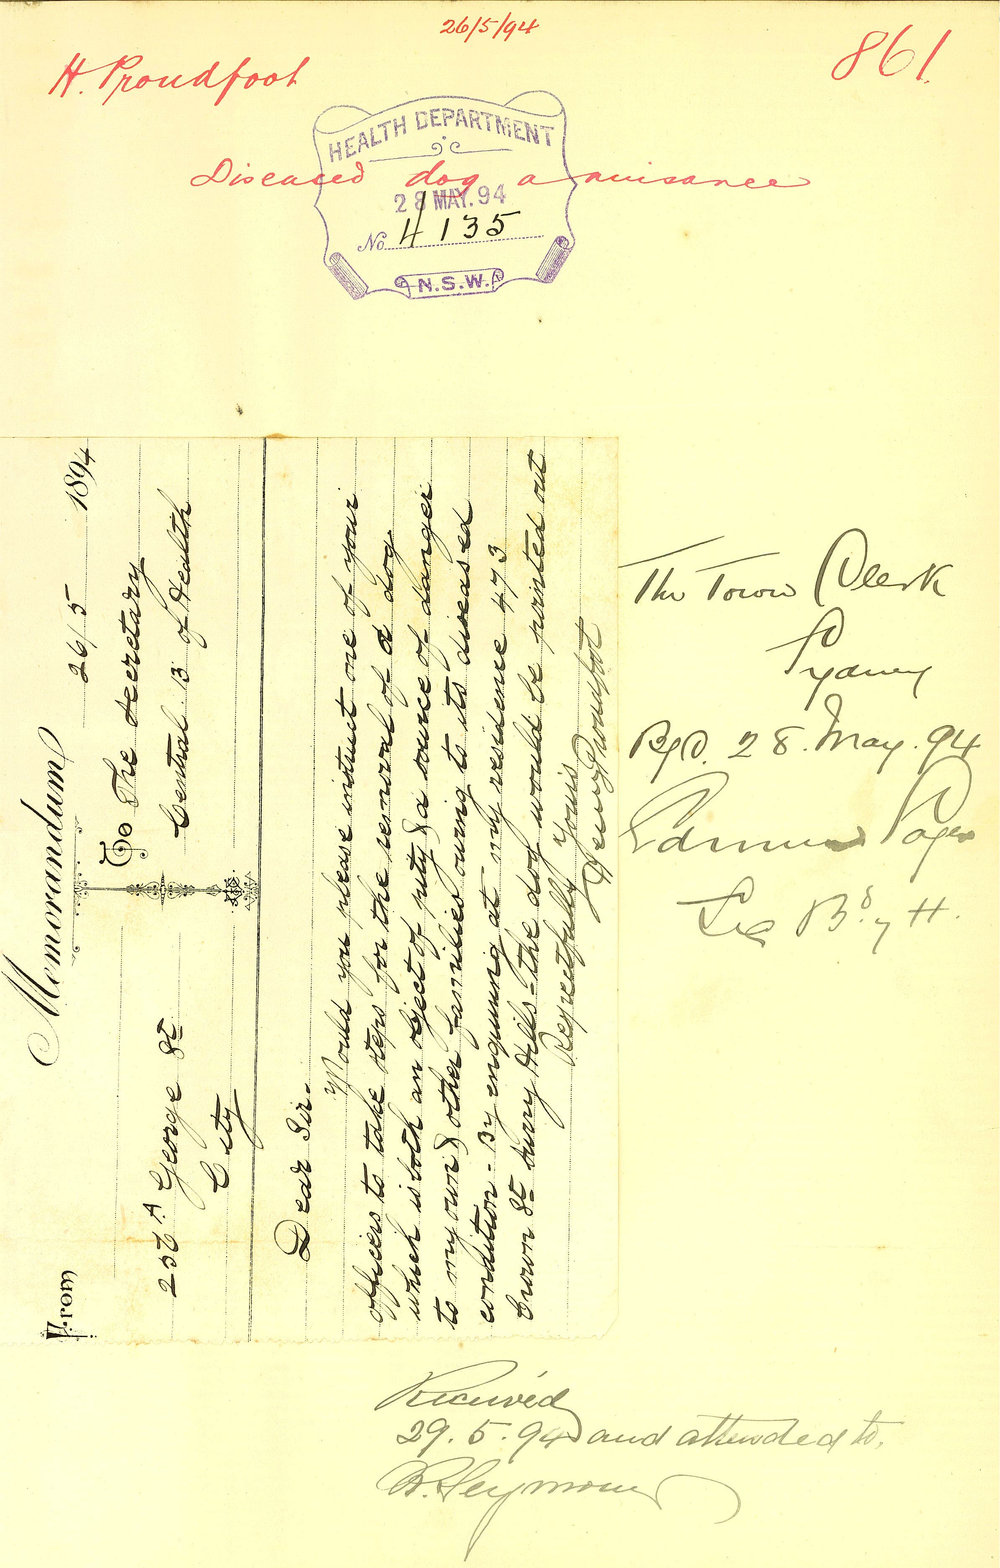 26/5/94
861.
H. Proudfoot
HEALTH DEPARTMENT
Diseased dog a nuisance
28 MAY. 94
No 4135
N.S.W.
Memorandum
26/5 1894
From
To The Secretary
256A George St
Central B of Health
City
Dear Sir.
Would you please instruct one of your
officers to take steps for the removal of a dog
which is both an object of pity & a source of danger
to my own & other families owing to its diseased
condition - By enquiring at my residence 473
Crown St Surry Hills - the dog would be pointed out
Respectfully Yours
Henry Proudfoot
The Town Clerk
Sydney
28. May. 94
Edmund Sager
Sec Bd of H.
Received
29.5.94 and attended to.
R. Seymour